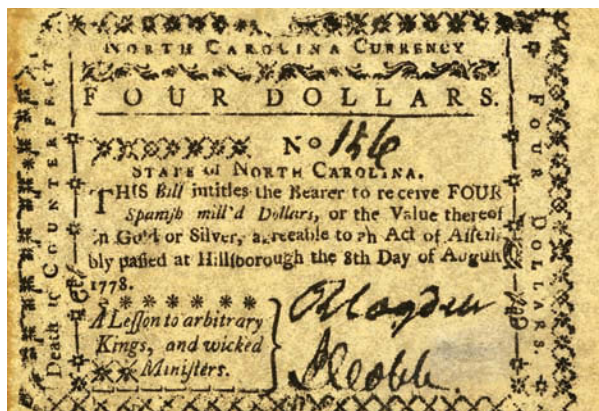 NORTH CAROLINA CURRENCY
FOUR DOLLARS.
No 156
STATE of NORTH CAROLINA.
THIS Bill intitles the Bearer to receive FOUR
Spaniſh mill'd Dollars, or the Value thereof
in Gold or Silver, agreeable to an Act of Aſſem
bly paſſed at Hillſborough the 8th Day of Auguſt
1778.
A Leſſon to arbitrary
Kings, and wicked
Miniſters.
Death to Counterfeit
Four Dollars.